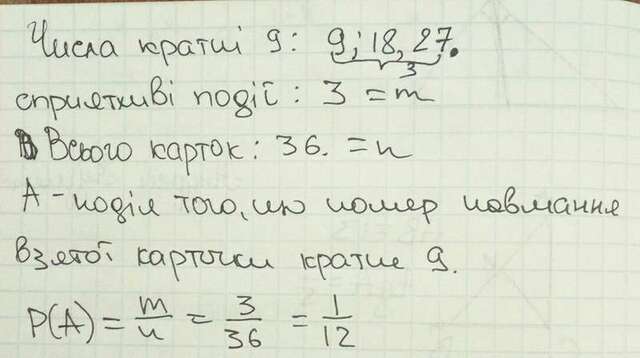 Числа кратні 9: 9; 18, 27.
3
сприятливі події: 3 = m
Всього карток: 36. = n
A - подія того, що номер навмання
взятої карточки кратне 9.
P(A) = m/n = 3/36 = 1/12